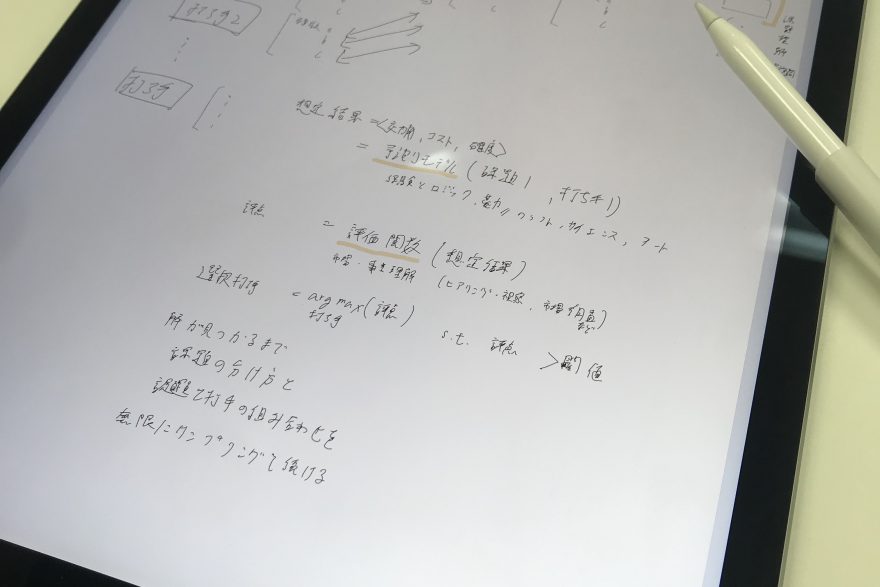 打ち手2
打ち手
想定結果 = (効, コスト, 確度)
= 予測モデル (課題1, 打ち手1)
経験とロジック, クラフト, サイエンス, アート
評点 = 評価関数 (想定結果)
市場・業界理解 (ヒアリング・視察, 市場調査など)
選択打ち手 = arg max (評点) s.t. 評点 > 閾値
打ち手
解が見つかるまで
課題の分け方と
課題と打ち手の組み合わせを
無限にサンプリングし続ける